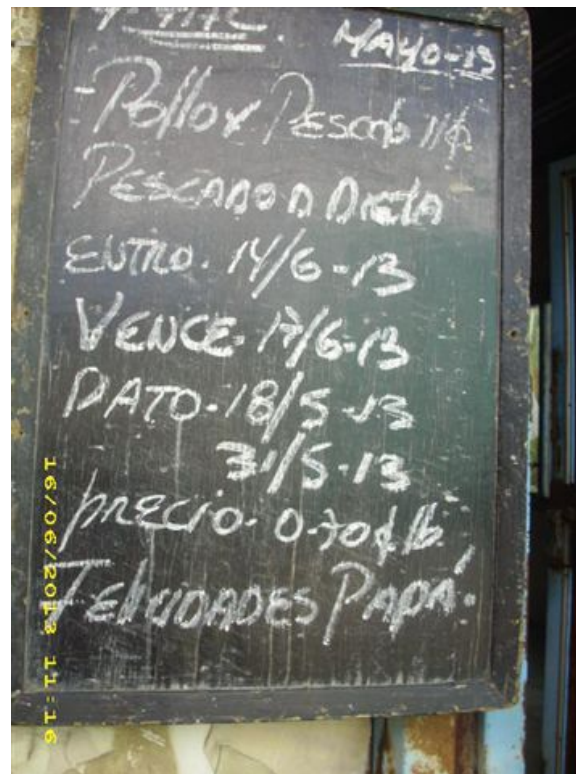 MAYO-13
-Pollo x Pescado 11₵
PESCADO D DIETA
ENTRO. 14/6-13
VENCE. 17/6-13
DATO-18/5-13
31/5-13
PRECIO- 0.70¢ lb
FELICIDADES PAPÁ.
16/06/2013 11:16